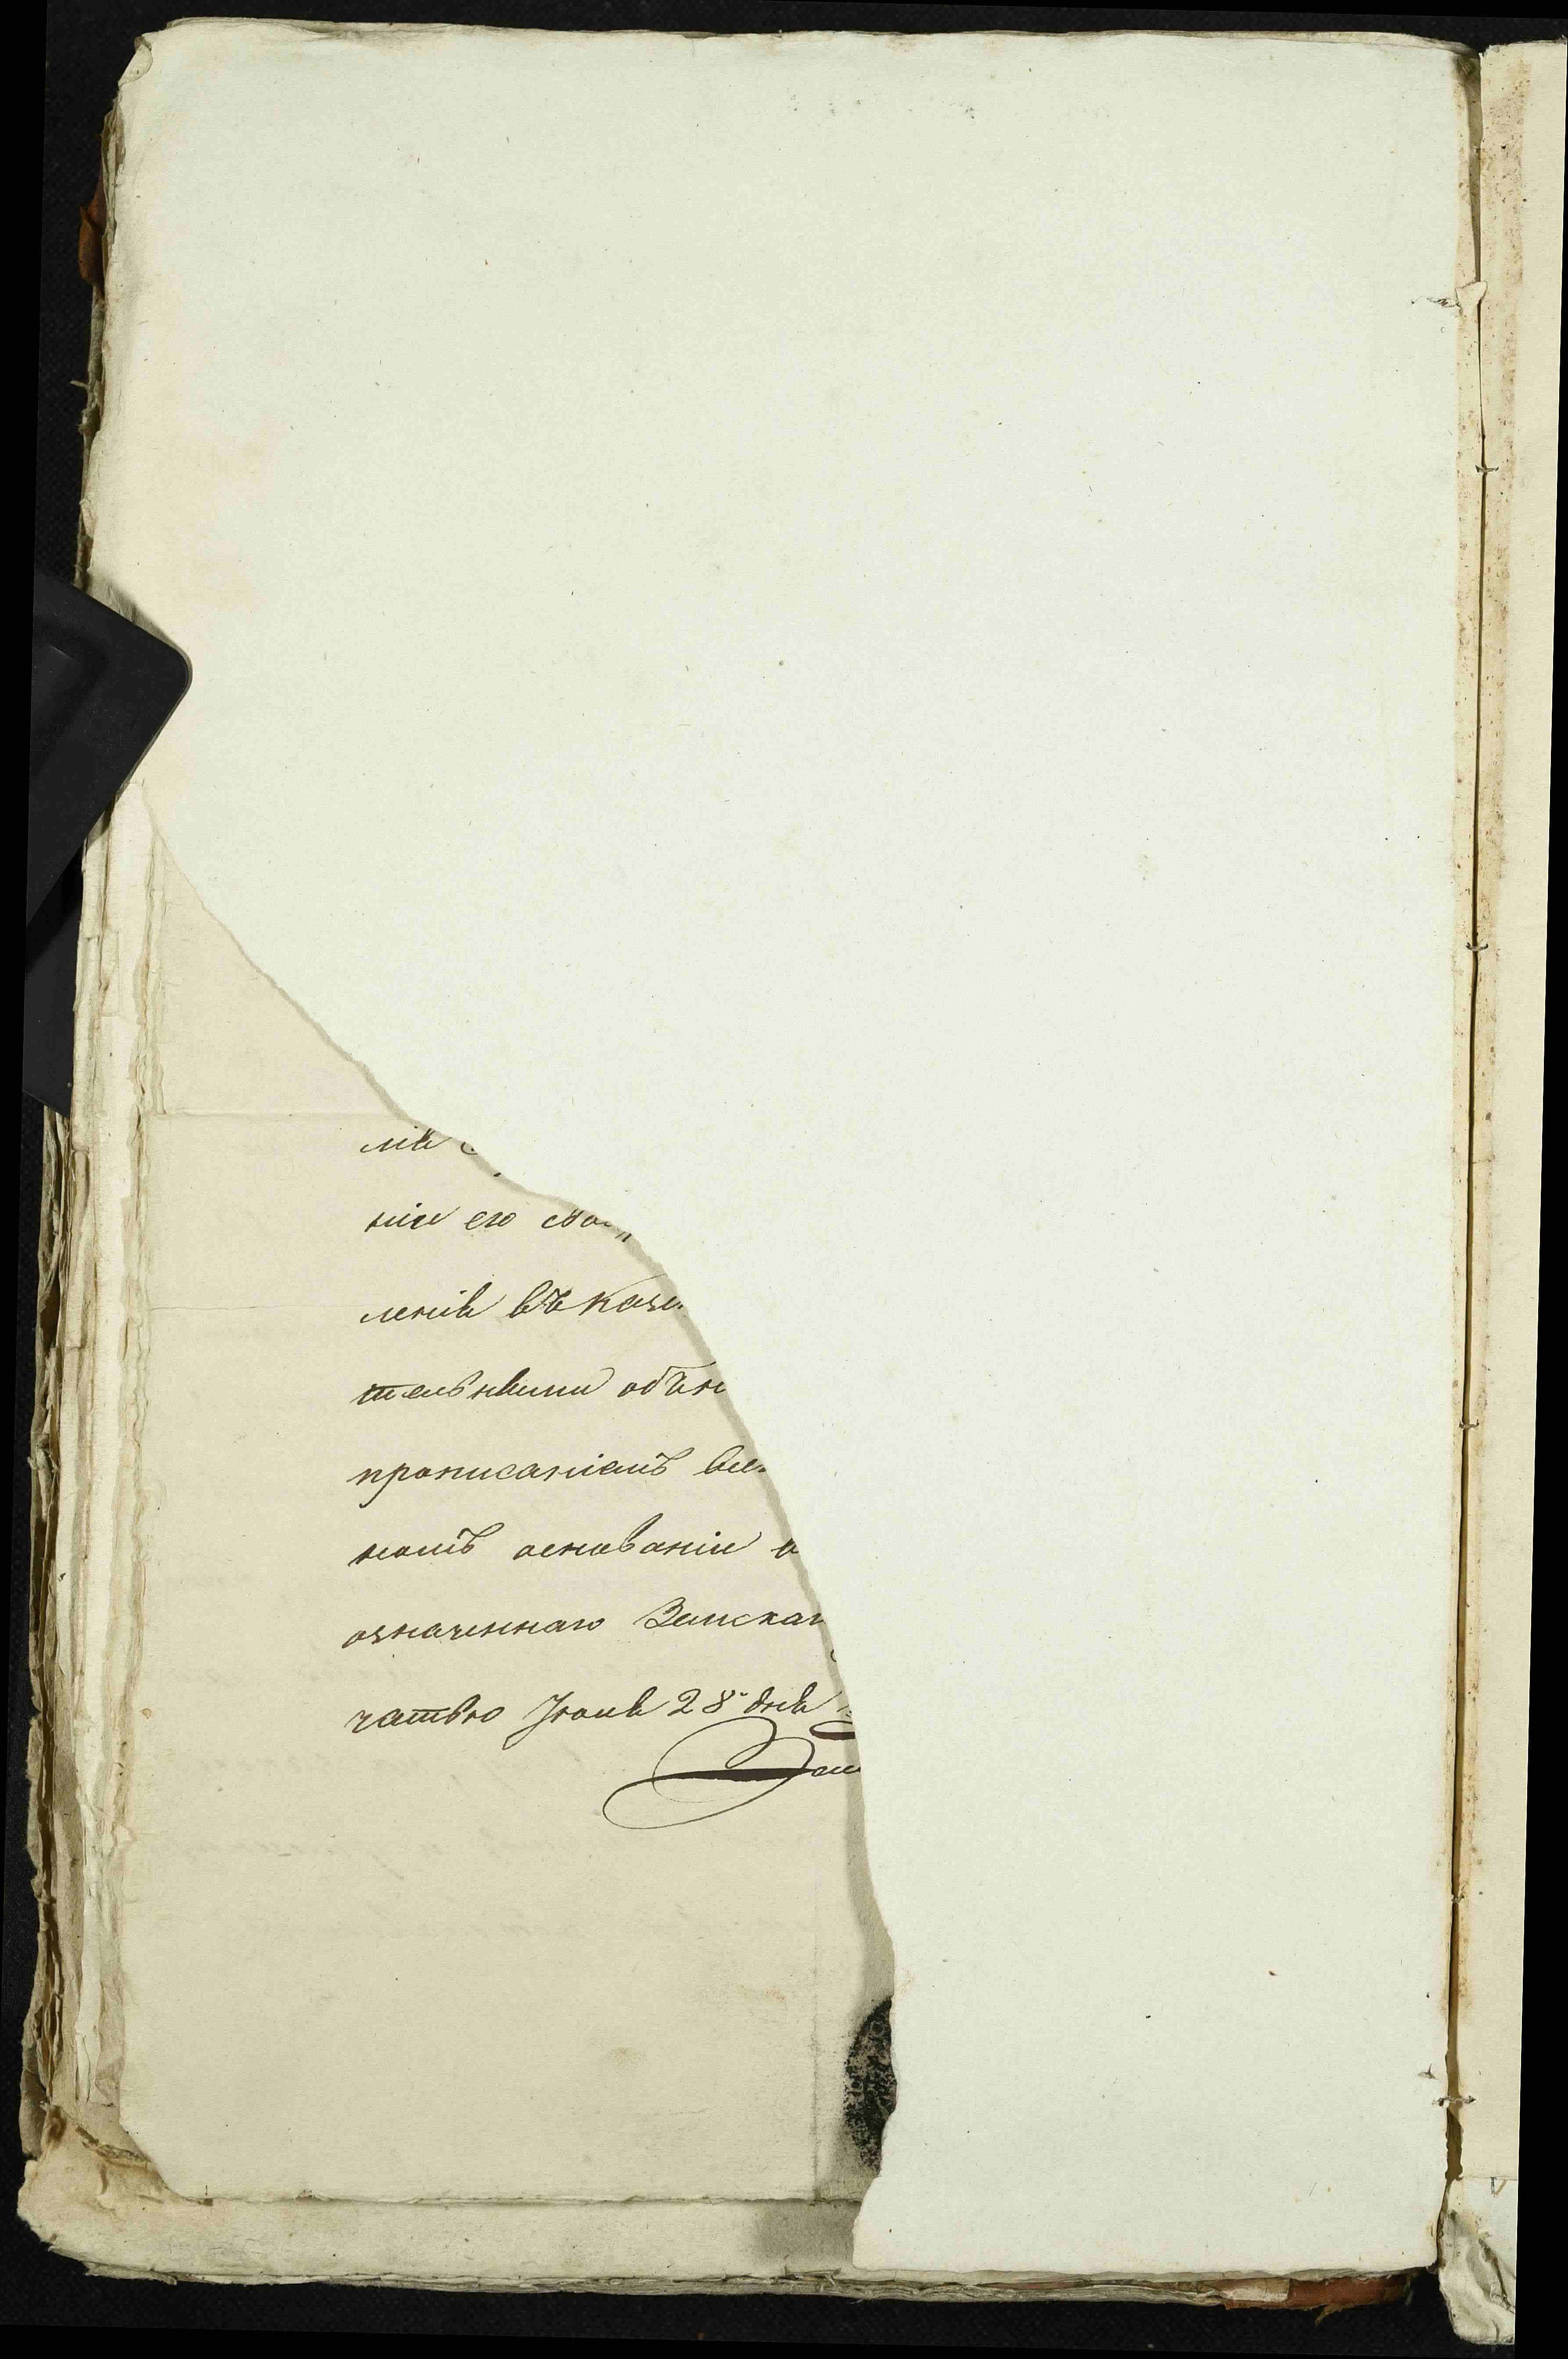 нія его
ленія въ казе
тельными объя
прописаніемъ
номъ основаніи
означеннаго Земскаг
чатью Іюня 28 дня